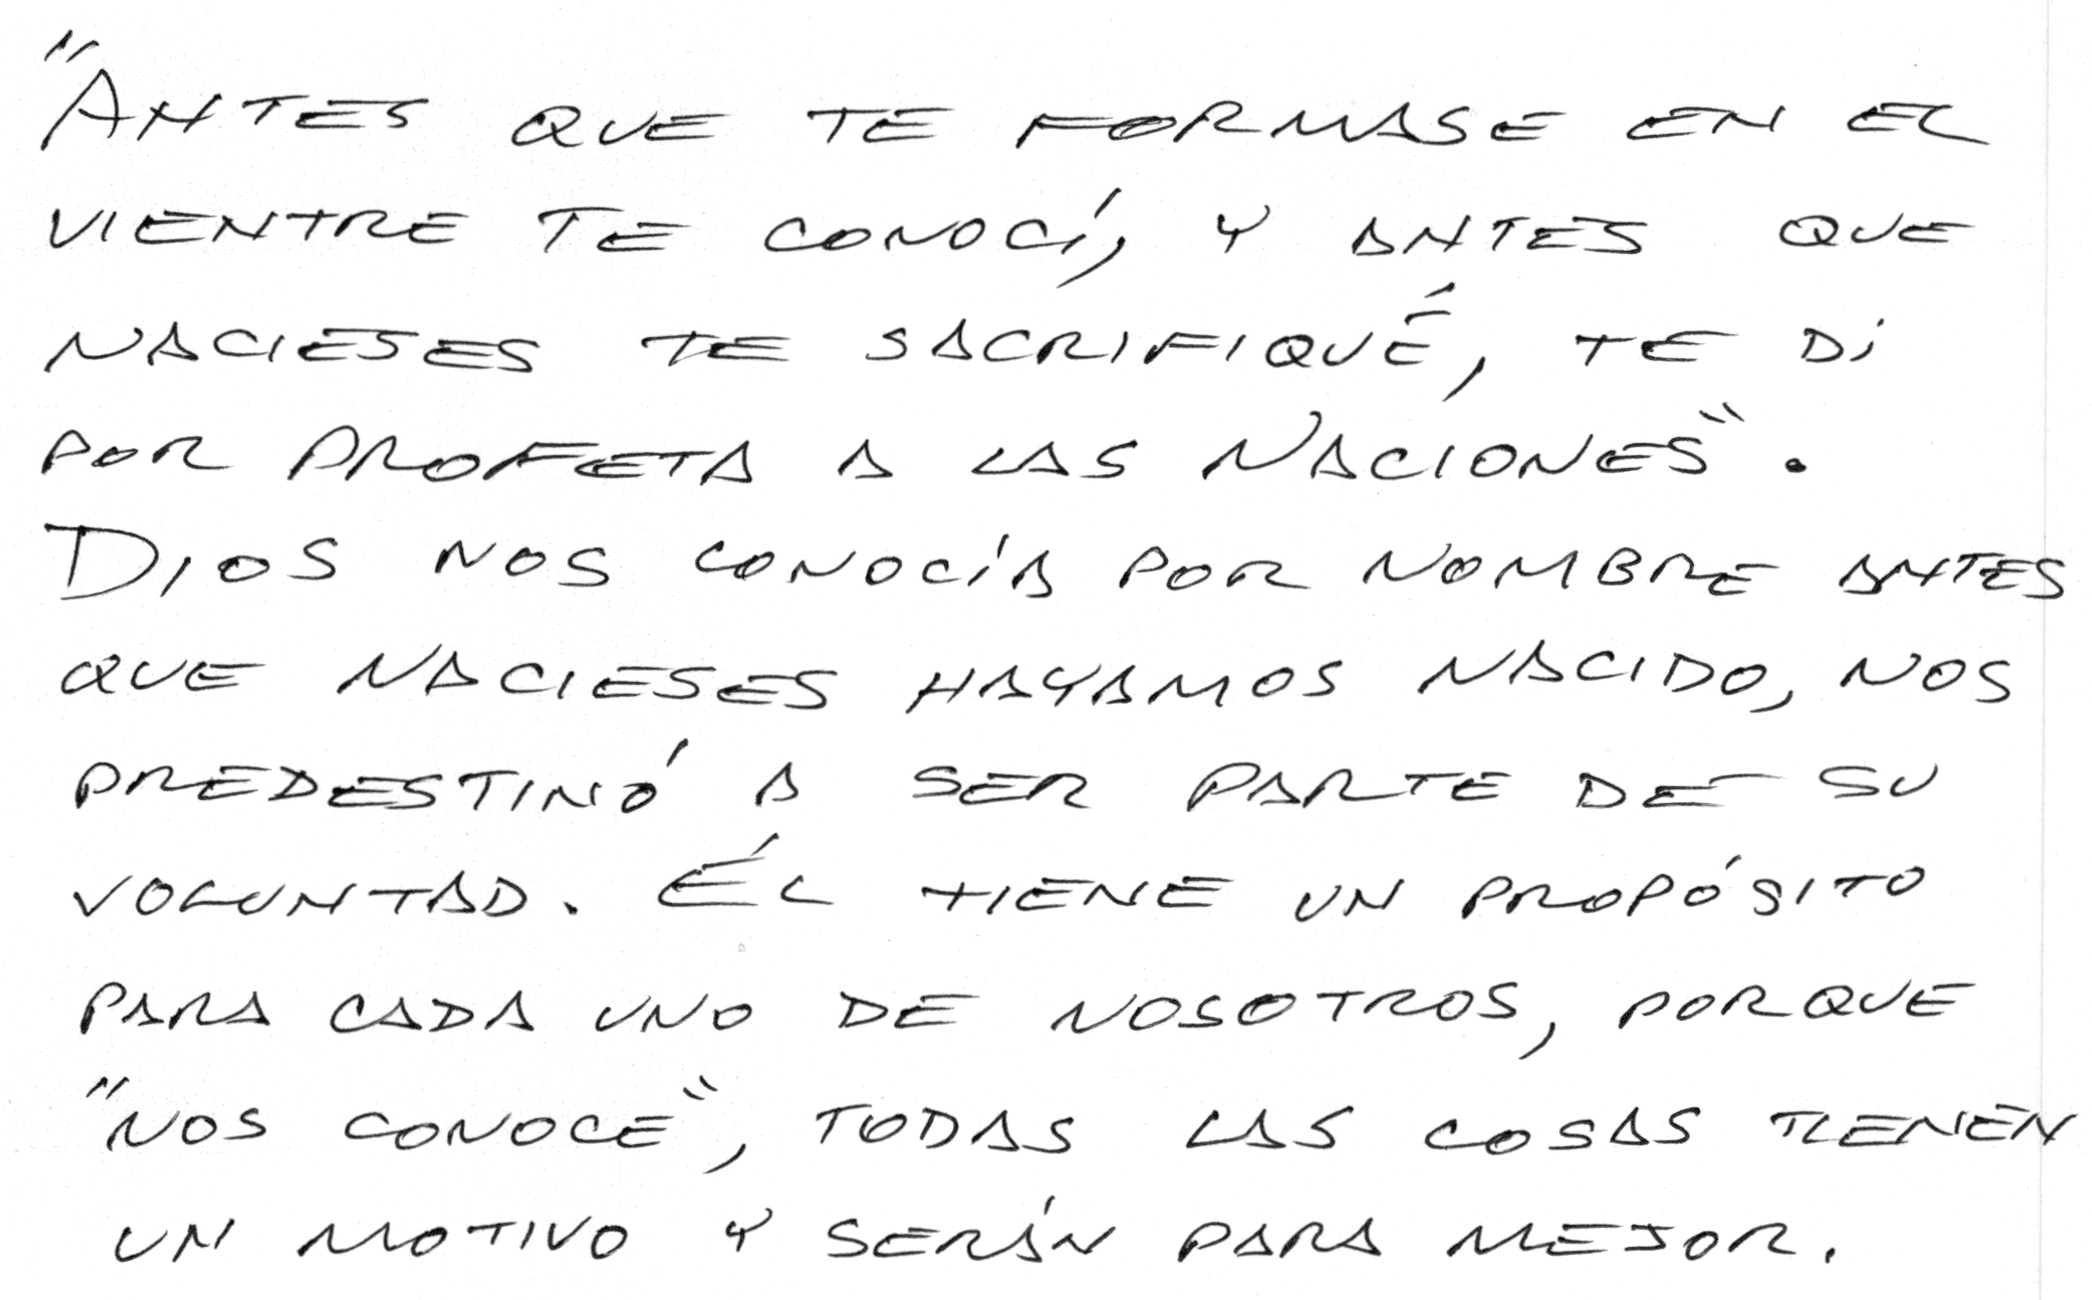 "ANTES QUE TE FORMASE EN EL
VIENTRE TE CONOCÍ, Y ANTES QUE
NACIESES TE SACRIFIQUÉ, TE DI
POR PROFETA A LAS NACIONES".
DIOS NOS CONOCÍA POR NOMBRE ANTES
QUE NACIESES HAYAMOS NACIDO, NOS
PREDESTINÓ A SER PARTE DE SU
VOLUNTAD. ÉL TIENE UN PROPÓSITO
PARA CADA UNO DE NOSOTROS, PORQUE
"NOS CONOCE", TODAS LAS COSAS TIENEN
UN MOTIVO Y SERÁN PARA MEJOR.